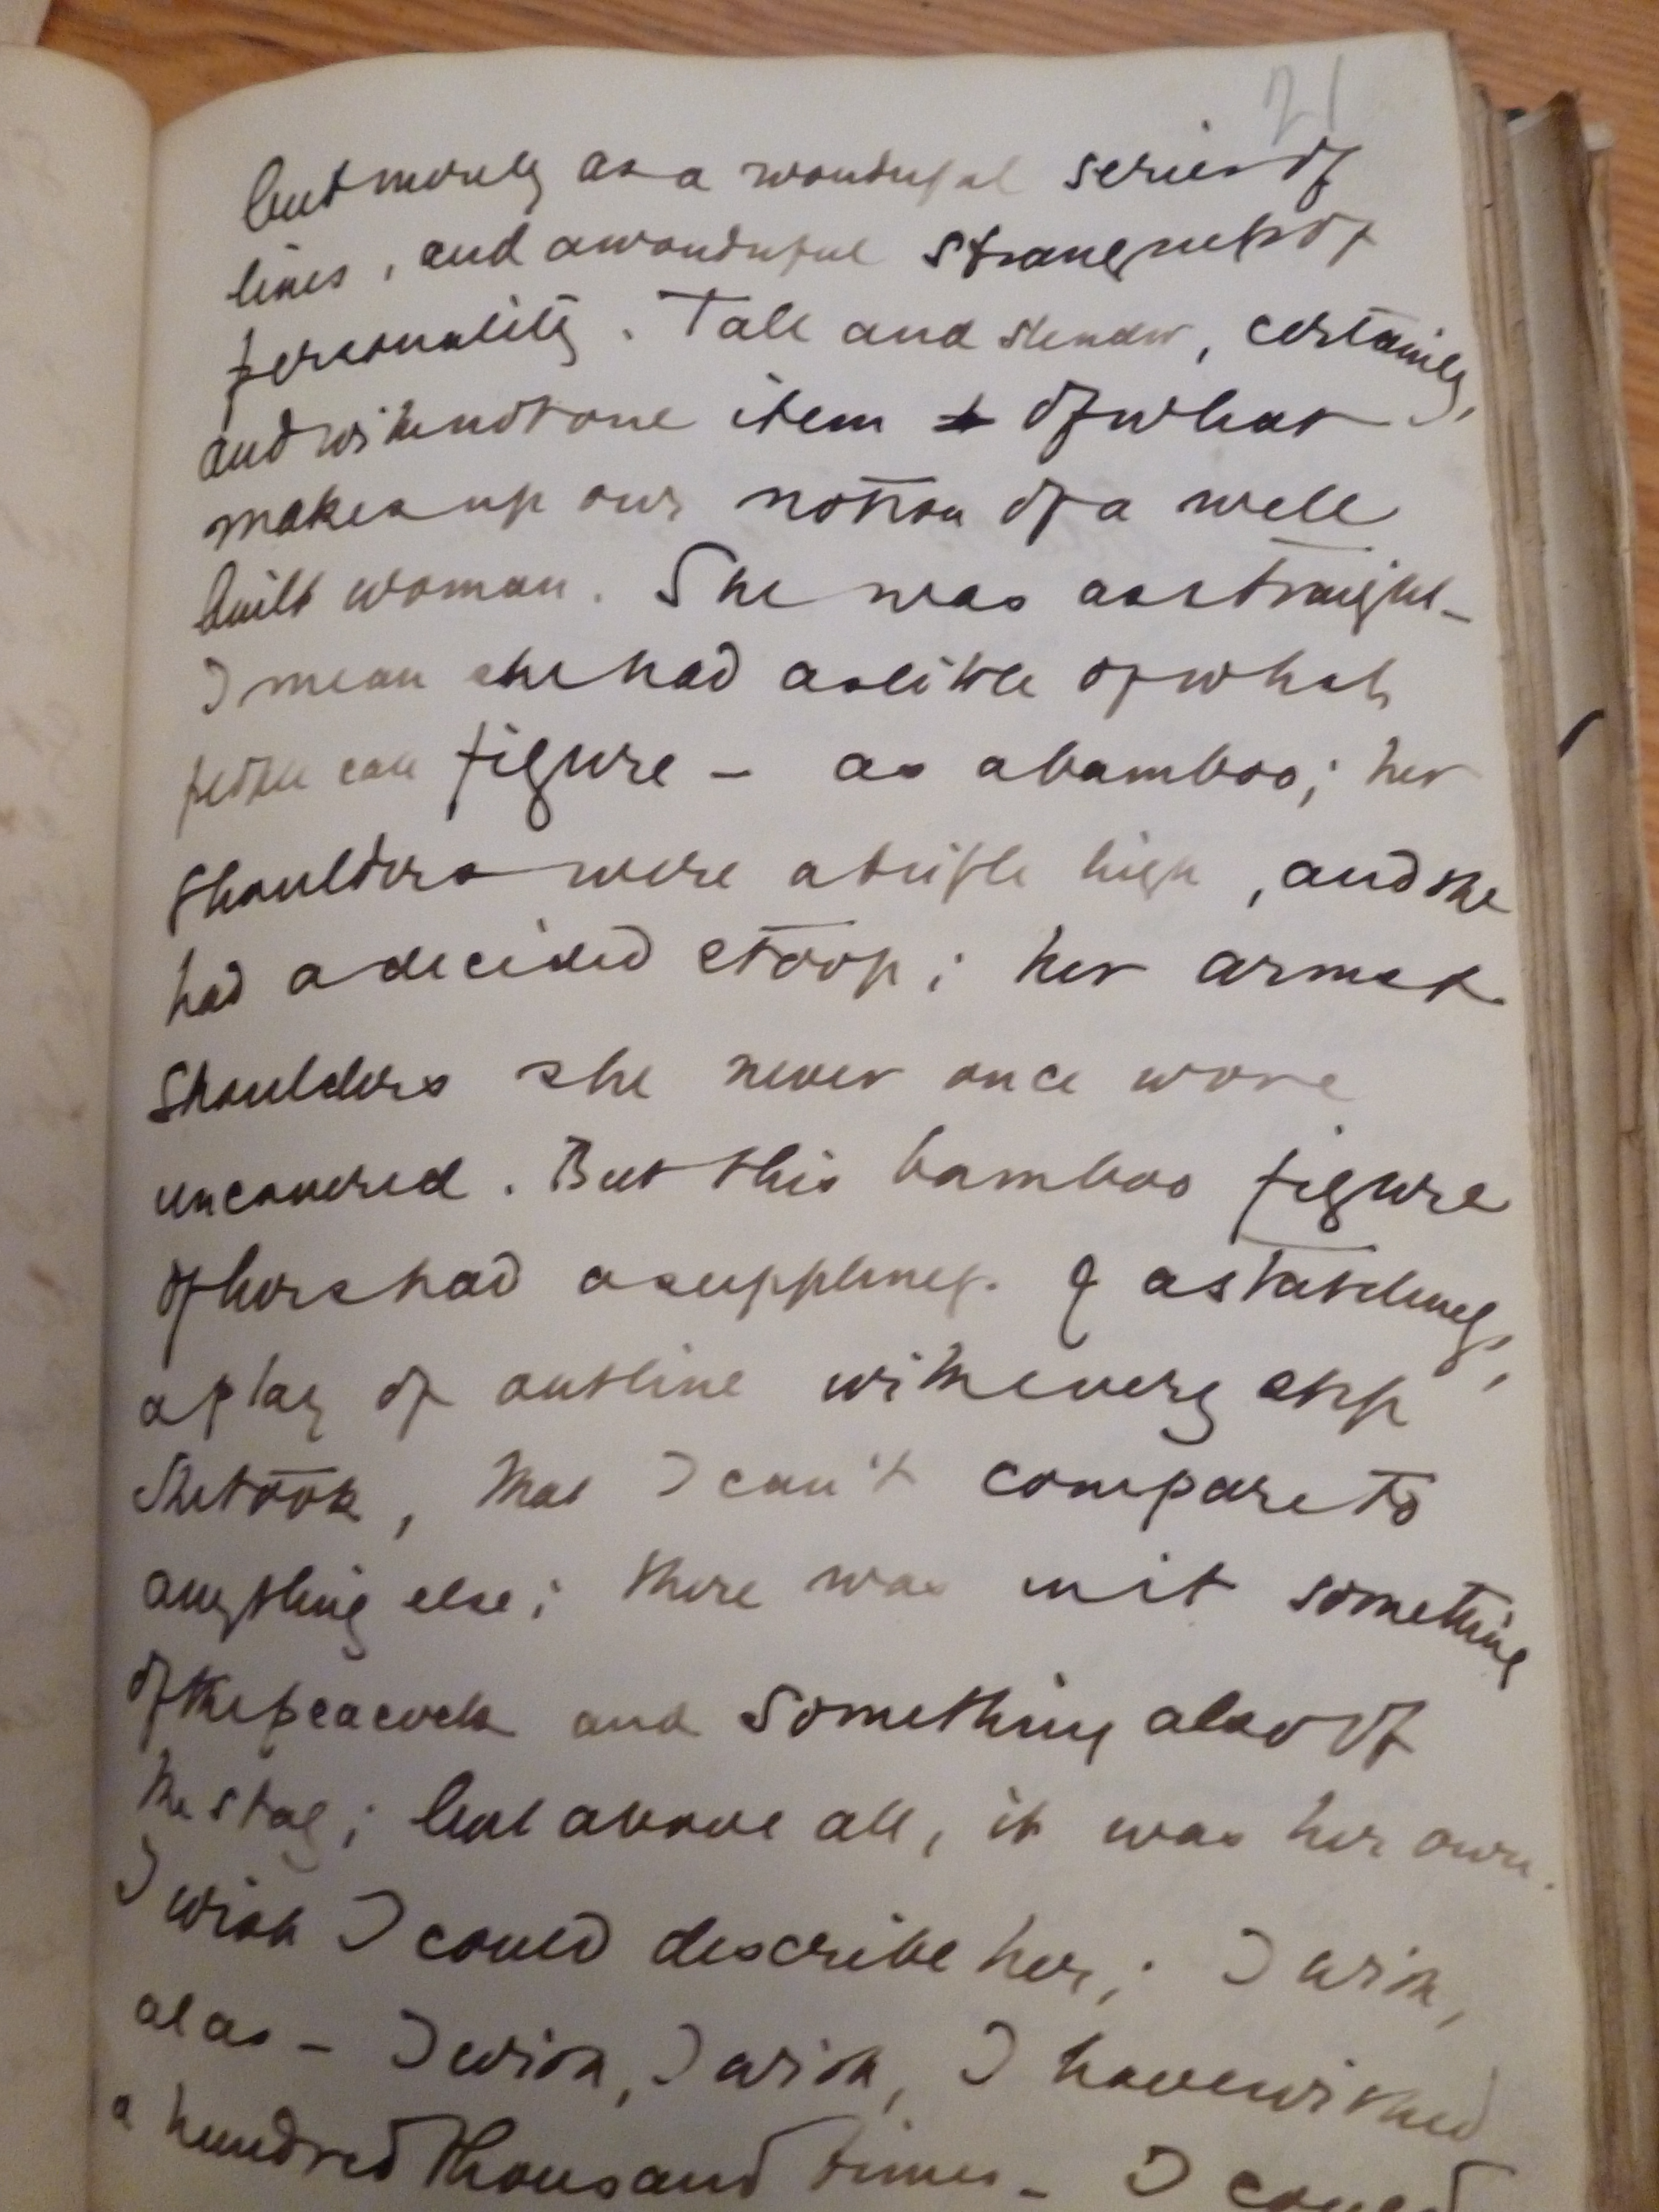 21
but merely as a wonderful series of
lines, and a wonderful strangeness of
personality. Tall and slender, certainly,
and with not one item of what
makes up our notion of a well
built woman. She was as straight –
I mean she had as little of what
people call figure – as a bamboo; her
shoulders were a trifle high, and she
had a decided stoop; her arms &
shoulders she never once wore
uncovered. But this bamboo figure
of hers had a suppleness & a stateliness,
a play of outline with every step
she took, that I can't compare to
anything else; there was in it something
of the peacock and something also of
the stag; but above all, it was her own.
I wish I could describe her; I wish,
alas – I wish, I wish, I have wished
a hundred thousand times – I could